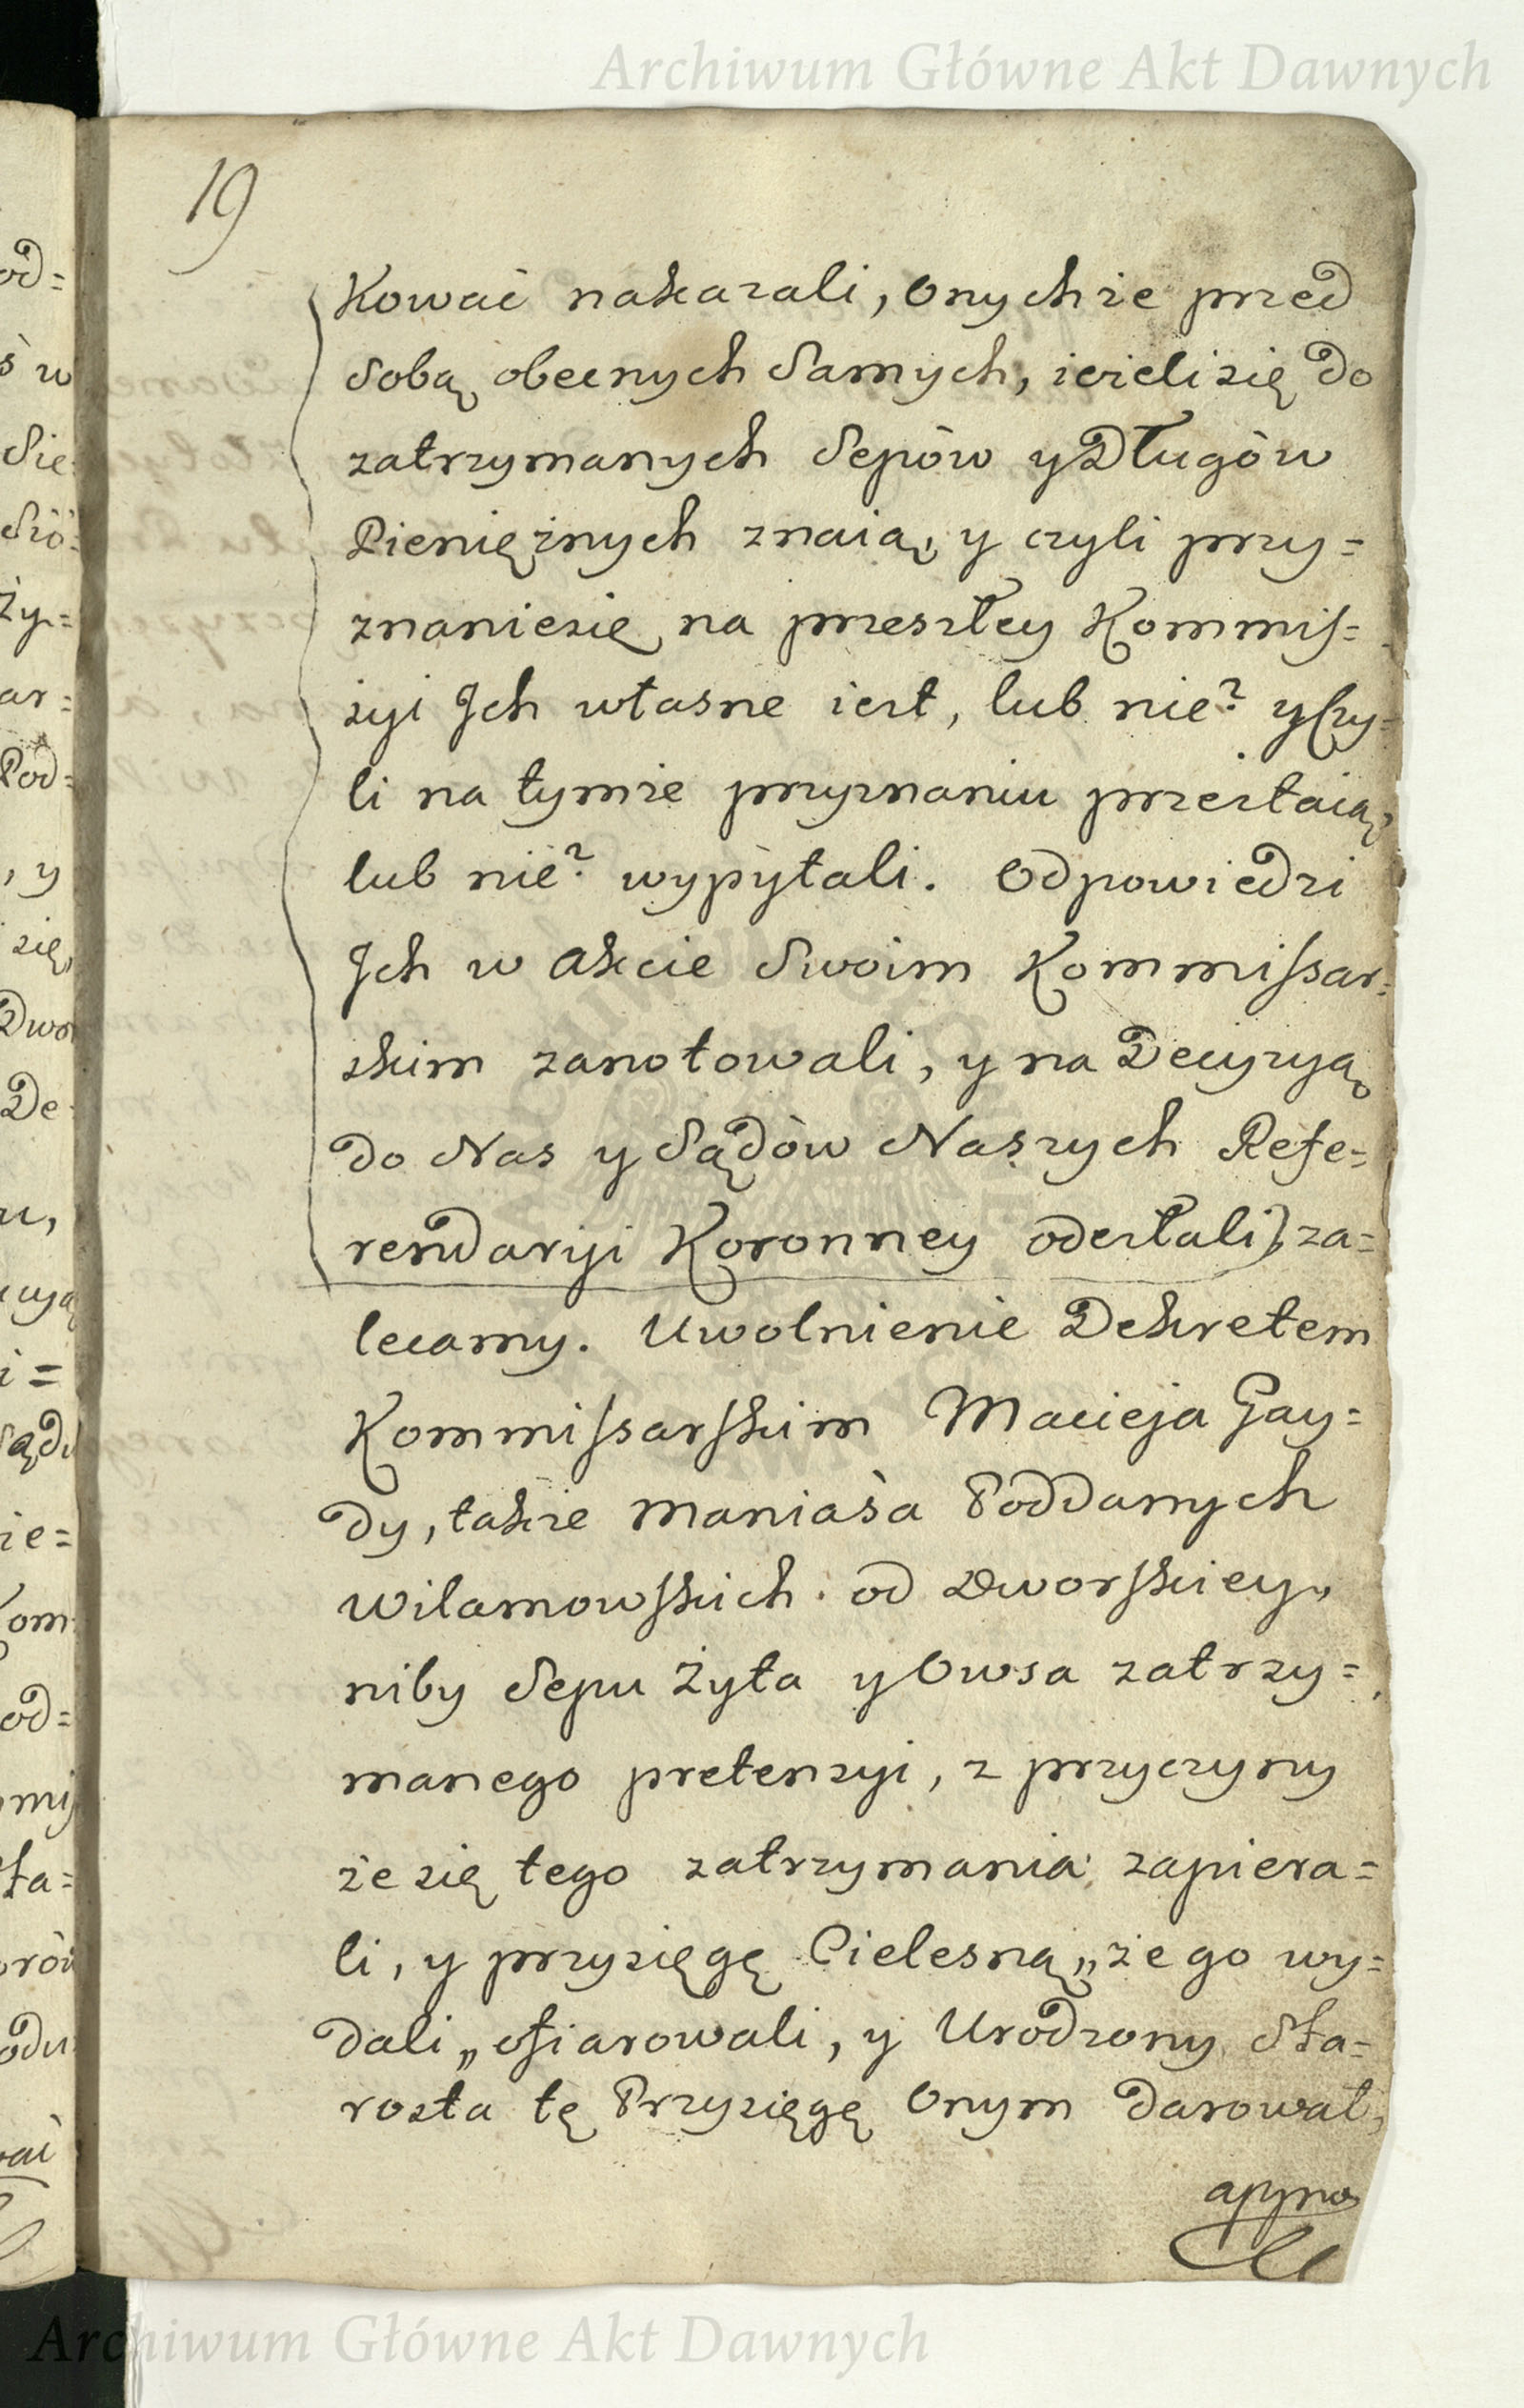 Archiwum Główne Akt Dawnych
19
Kować nakazali, Onychże przed
Sobą obecnych Samych, ieżeli się do
zatrzymanych Sepów y Długów
Pieniężnych znaią, y czyli przy=
znanie się na przeszłey Kommis=
syi Jch własne iest, lub nie? y Czy=
li na tymże przyznaniu przestaią,
lub nie? wypytali. Odpowiedzi
Jch w Akcie Swoim Kommissar=
skim zanotowali, y na Decyzyą
do Nas y Sądów Naszych Refe=
rendaryi Koronney odesłali) za=
lecamy. Uwolnienie Dekretem
Kommissarskim Macieja Gay=
dy, także Maniasa Poddanych
Wilamowskich od Dworskiey,
niby Sepu Żyta y Owsa zatrzy=
manego pretensyi, z przyczyny
że się tego zatrzymania zapiera=
li, y przysięgę Cielesną „że go wy=
dali„ ofiarowali, y Urodzony Sta=
rosta tę Przysięgę Onym darował,
Archiwum Główne Akt Dawnych